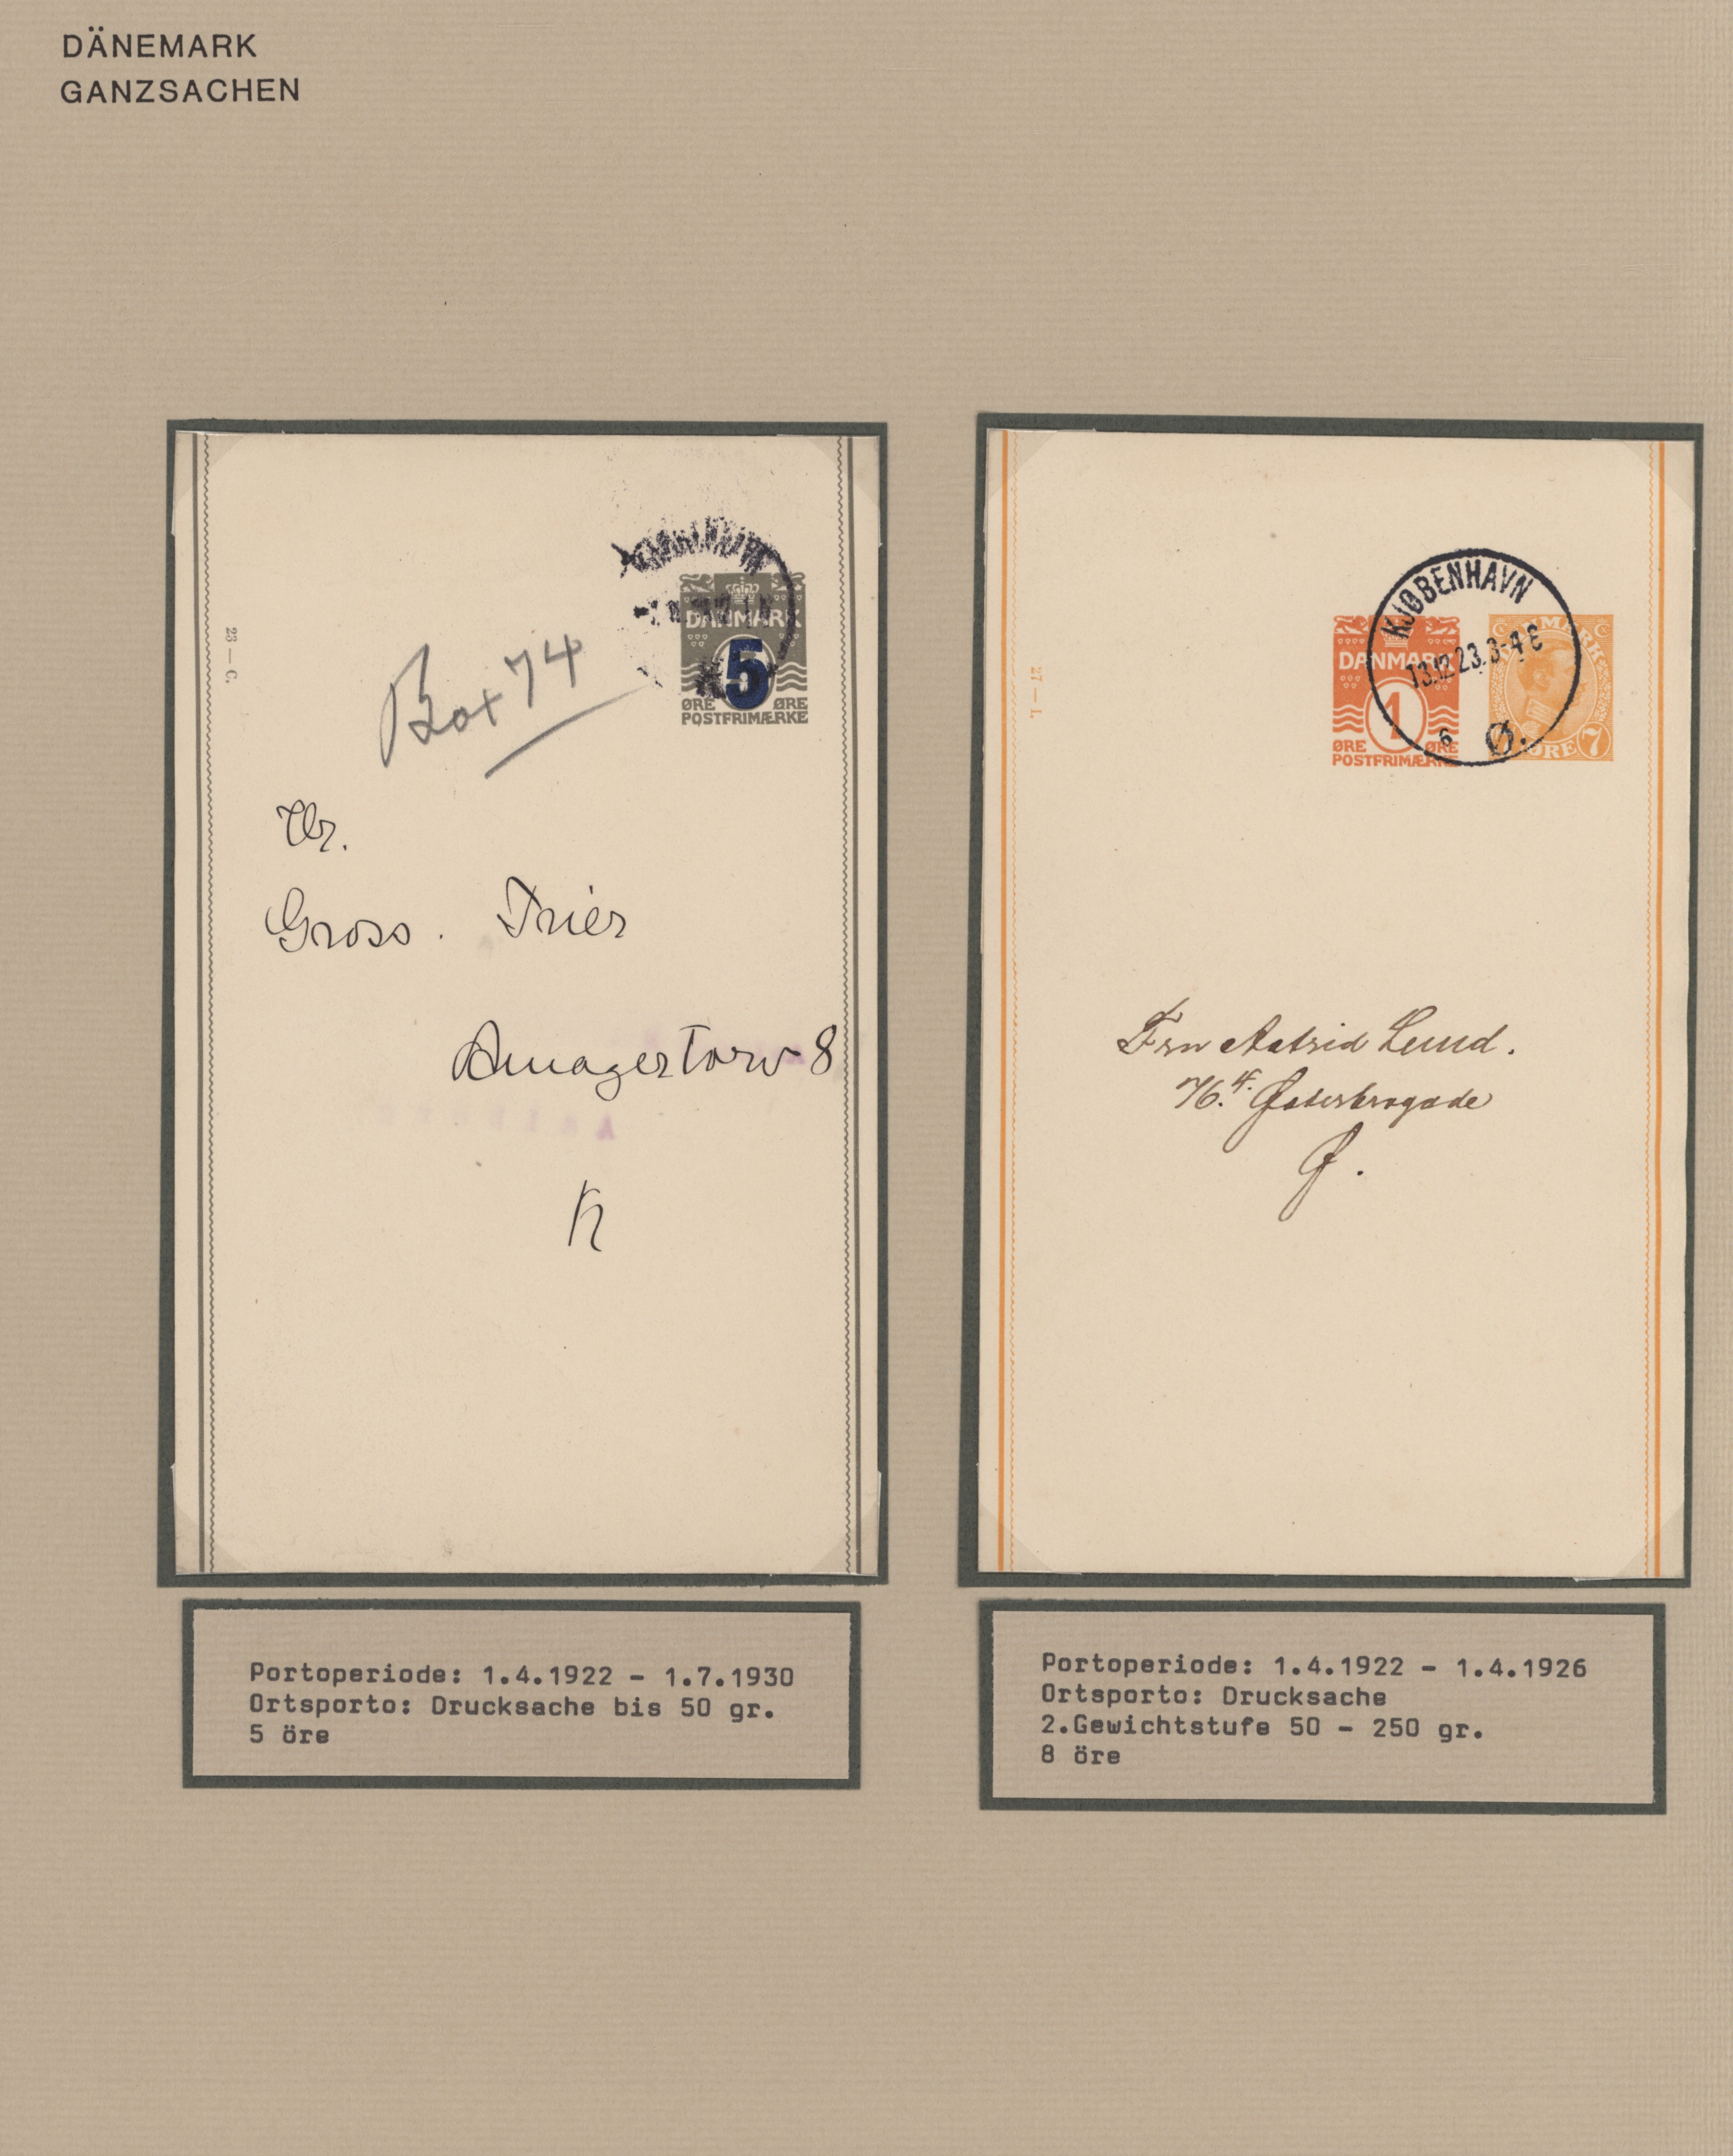 DÄNEMARK
GANZSACHEN
23 — C.
Box 74
DANMARK
5
ØRE ØRE
POSTFRIMÆRKE
Hr.
Gross. Trier
Amagertorv 8
K
Portoperiode: 1.4.1922 - 1.7.1930
Ortsporto: Drucksache bis 50 gr.
5 öre
27 — I.
KJØBENHAVN
13.12.23. 3-4 E
6 Ø.
DANMARK
1
ØRE ØRE
POSTFRIMÆRKE
DANMARK
ØRE 7
Fru Astrid Lund.
76.4. Østerbrogade
Ø.
Portoperiode: 1.4.1922 - 1.4.1926
Ortsporto: Drucksache
2.Gewichtstufe 50 - 250 gr.
8 öre